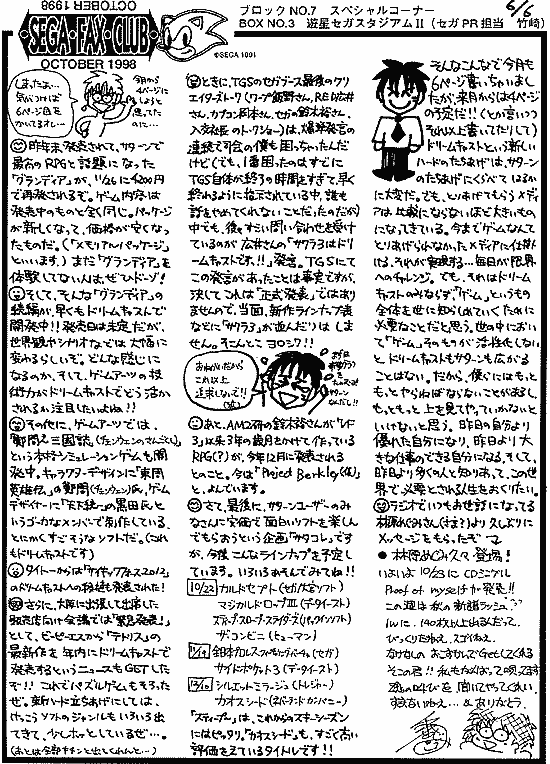 OCTOBER 1998
SEGA・FAX・CLUB
OCTOBER 1998
©SEGA 1991
ブロックNO.7 スペシャルコーナー
BOX NO.3 遊星セガスタジアムⅡ(セガPR担当 竹崎)
6/6
しまったぁ…
気がつけば
6ページ目を
かいてるオレ…
今月から
4ページに
しようと
思ってた
のに…
昨年末、発売されて、サターンで
最高のRPGと話題になった
「グランディア」が、11/26に4200円
で再発されるぞ。ゲーム内容は
発売中のものと全く同じ。パッケージ
が新しくなって、価格が安くなっ
たものだ。(「メモリアルパッケージ」
といいます。)まだ「グランディア」を
体験してない人は、ぜひドーゾ!
そして、そんな「グランディア」の
続編が、早くもドリームキャストで
開発中!!発売日は未定だが、
世界観やシナリオなどは大幅に
変わるらしいぞ。どんな感じに
なるのか、そして、ゲームアーツの技
術力がドリームキャストでどう活か
されるか注目したいよね!!
その他に、ゲームアーツでは、
という本格シミュレーションゲームも開
発中。キャラクターデザインに「東周
英雄伝」の鄭問(チェンウェン)氏、ゲーム
デザイナーに「天下統一」の黒田氏と
いうゴーカなメンバーで制作している、
とにかくすごそうなソフトだ。(これ
もドリームキャストです)
タイトーからは「サイキックフォース2012」
のドリームキャストへの移植も発表された!
さらに、大阪に出張して出席した
販売店向け会議では「緊急発表!」
として、ビーピーエスから「テトリス」の
最新作を年内にドリームキャストで
発売するというニュースもGETした
ぞ!!これでパズルゲームもそろった
ぜ。新ハード立ちあげにしては、
けっこうソフトのジャンルもいろいろ出
てきて、少しホッとしているぜ…。
ときに、TGSのセガブース最後のクリ
エイターズトーク(ワープ飯野さん、RED広井
さん、カプコン岡本さん、セガの鈴木裕さん、
入交社長のトークショー)は、爆弾発言の
連続で司会の僕も困っちゃったんだ
けど(でも、1番困ったのはすでに
TGS自体が終了の時間をすぎて、早く
終わるように指示されている中、誰も
話をやめてくれないことだったのだが)
中でも、後ですごい問い合わせを受け
ているのが広井さんの「サクラ3はドリ
ームキャストです!!」発言。TGSにて
この発言があったことは事実ですが、
決してこれは「正式発表」ではあり
ませんので、当面、新作ラインナップ表
などに「サクラ3」が並んだりはしま
せん。そんートコ ヨロシク!!
おねがいだから
これ以上
追求しないで!!
あと、AM2研の鈴木裕さんが「シド
とのこと。今は「Project Berkley(仮)」
と、よんでいます。
さて、最後に、サターンユーザーのみ
なさんに安価で面白いソフトを楽しん
でもらおうという企画「サタコレ」です
が、今後こんなラインナップを予定し
ています。いろいろあそんでみてね!!
10/22 カルドセプト(セガ/大宮ソフト)
マジカルドロップⅢ(データイースト)
ザ・コンビニ(ヒューマン)
サイドポケット3(データイースト)
12/10 シルエットミラージュ(トレジャー)
カオスシード(ネバーランドカンパニー)
「スティープ…」は、これからのスキーシーズン
にはピッタリ。「カオスシード」も、すごく高い
評価をえているタイトルです!!
そんなこんなで今月も
6ページ書いちゃいまし
たが、来月からは4ページ
の予定だ!!(とか言いつつ
それ以上書いてたりして)
ドリームキャストという新しい
ハードのたちあげは、サターン
のたちあげにくらべてはるか
に大変だ。でも、とりあげてもらうメディ
アは比較にならないほど大きいもの
になってきている。今までゲームなんて
とりあげられなかったメディアに仕掛
ける、それが実現する…毎日が限界
へのチャレンジ。でも、それはドリーム
キャストのみならず、「ゲーム」というもの
全体を世に知られていくために
必要なことだと思う。世の中におい
て「ゲーム」そのものが活性化しない
と、ドリームキャストもサターンも広がる
ことはない。だから、僕らにはもっと
もっとやらねばならないことがあるし、
もっともっと上を見てやっていかないと
いけないと思う。昨日の自分より
優れた自分になり、昨日より大
きな仕事のできる自分になる。そして、
昨日より多くの人と知りあって、この世
界で必要とされる人生をおくりたい。
ラジオでいつもお世話になってる
メッセージをもらったぞ
●林原めぐみ久々登場!
いよいよ10/23にCDシングル
Proof of myselfが発売!!
びっくりだねえ。スゴイねえ。